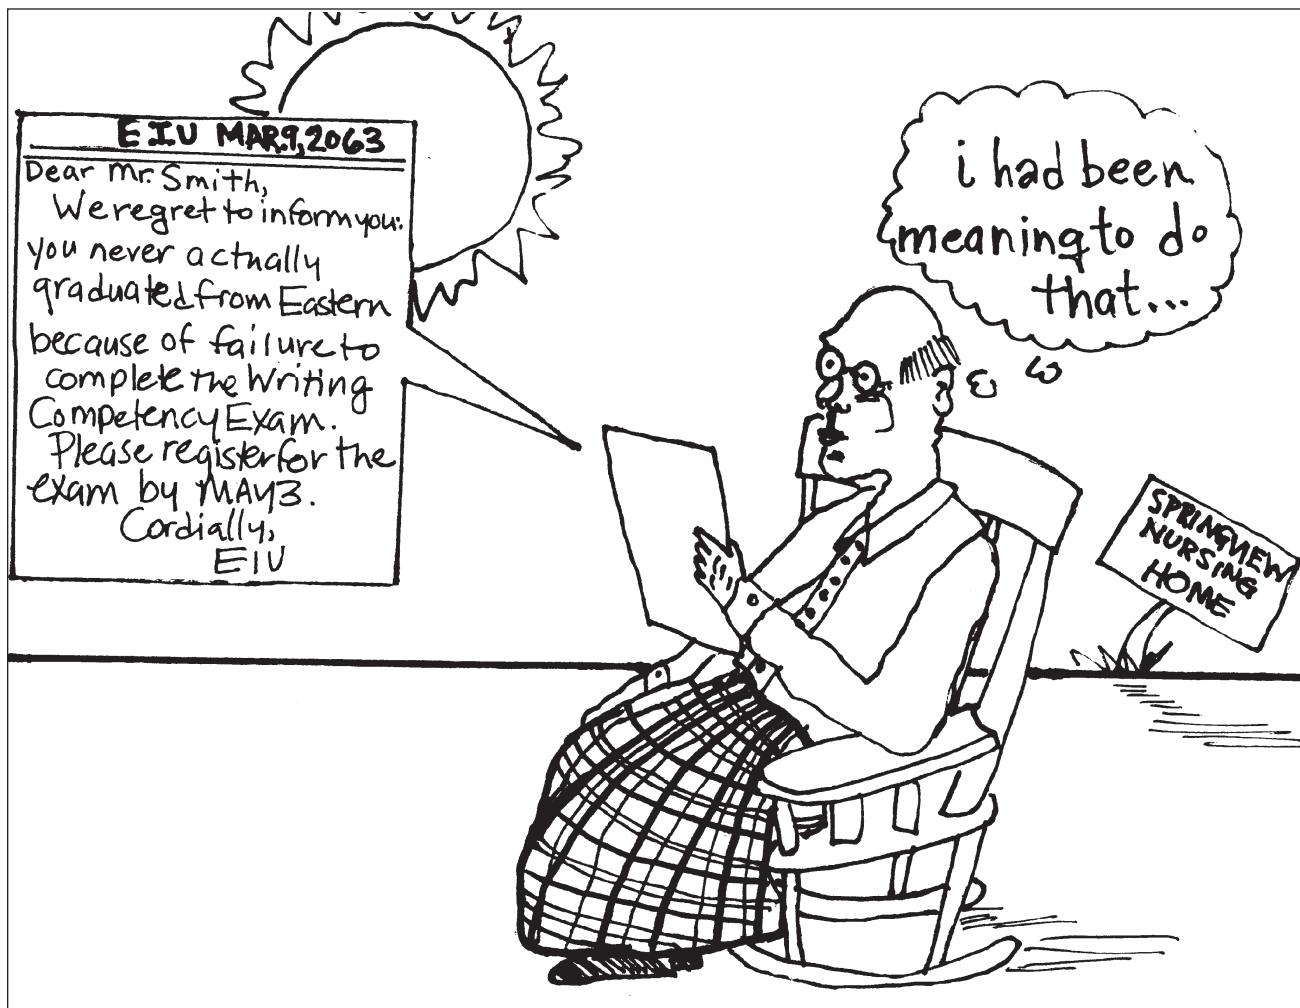 EIU MAR.9,2063
Dear Mr. Smith,
We regret to inform you:
you never actually
graduated from Eastern
because of failure to
complete the Writing
Competency Exam.
Please register for the
exam by MAY 3.
Cordially,
EIU
i had been
meaning to do
that...
SPRINGVIEW
NURSING
HOME